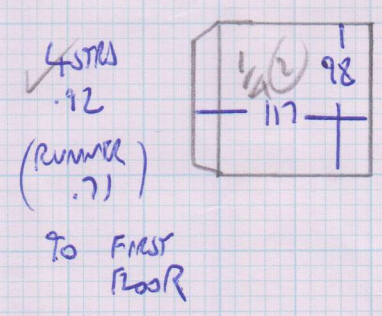 4 STRS
.92
(RUNNER
.71)
TO FIRST
FLOOR
98
117